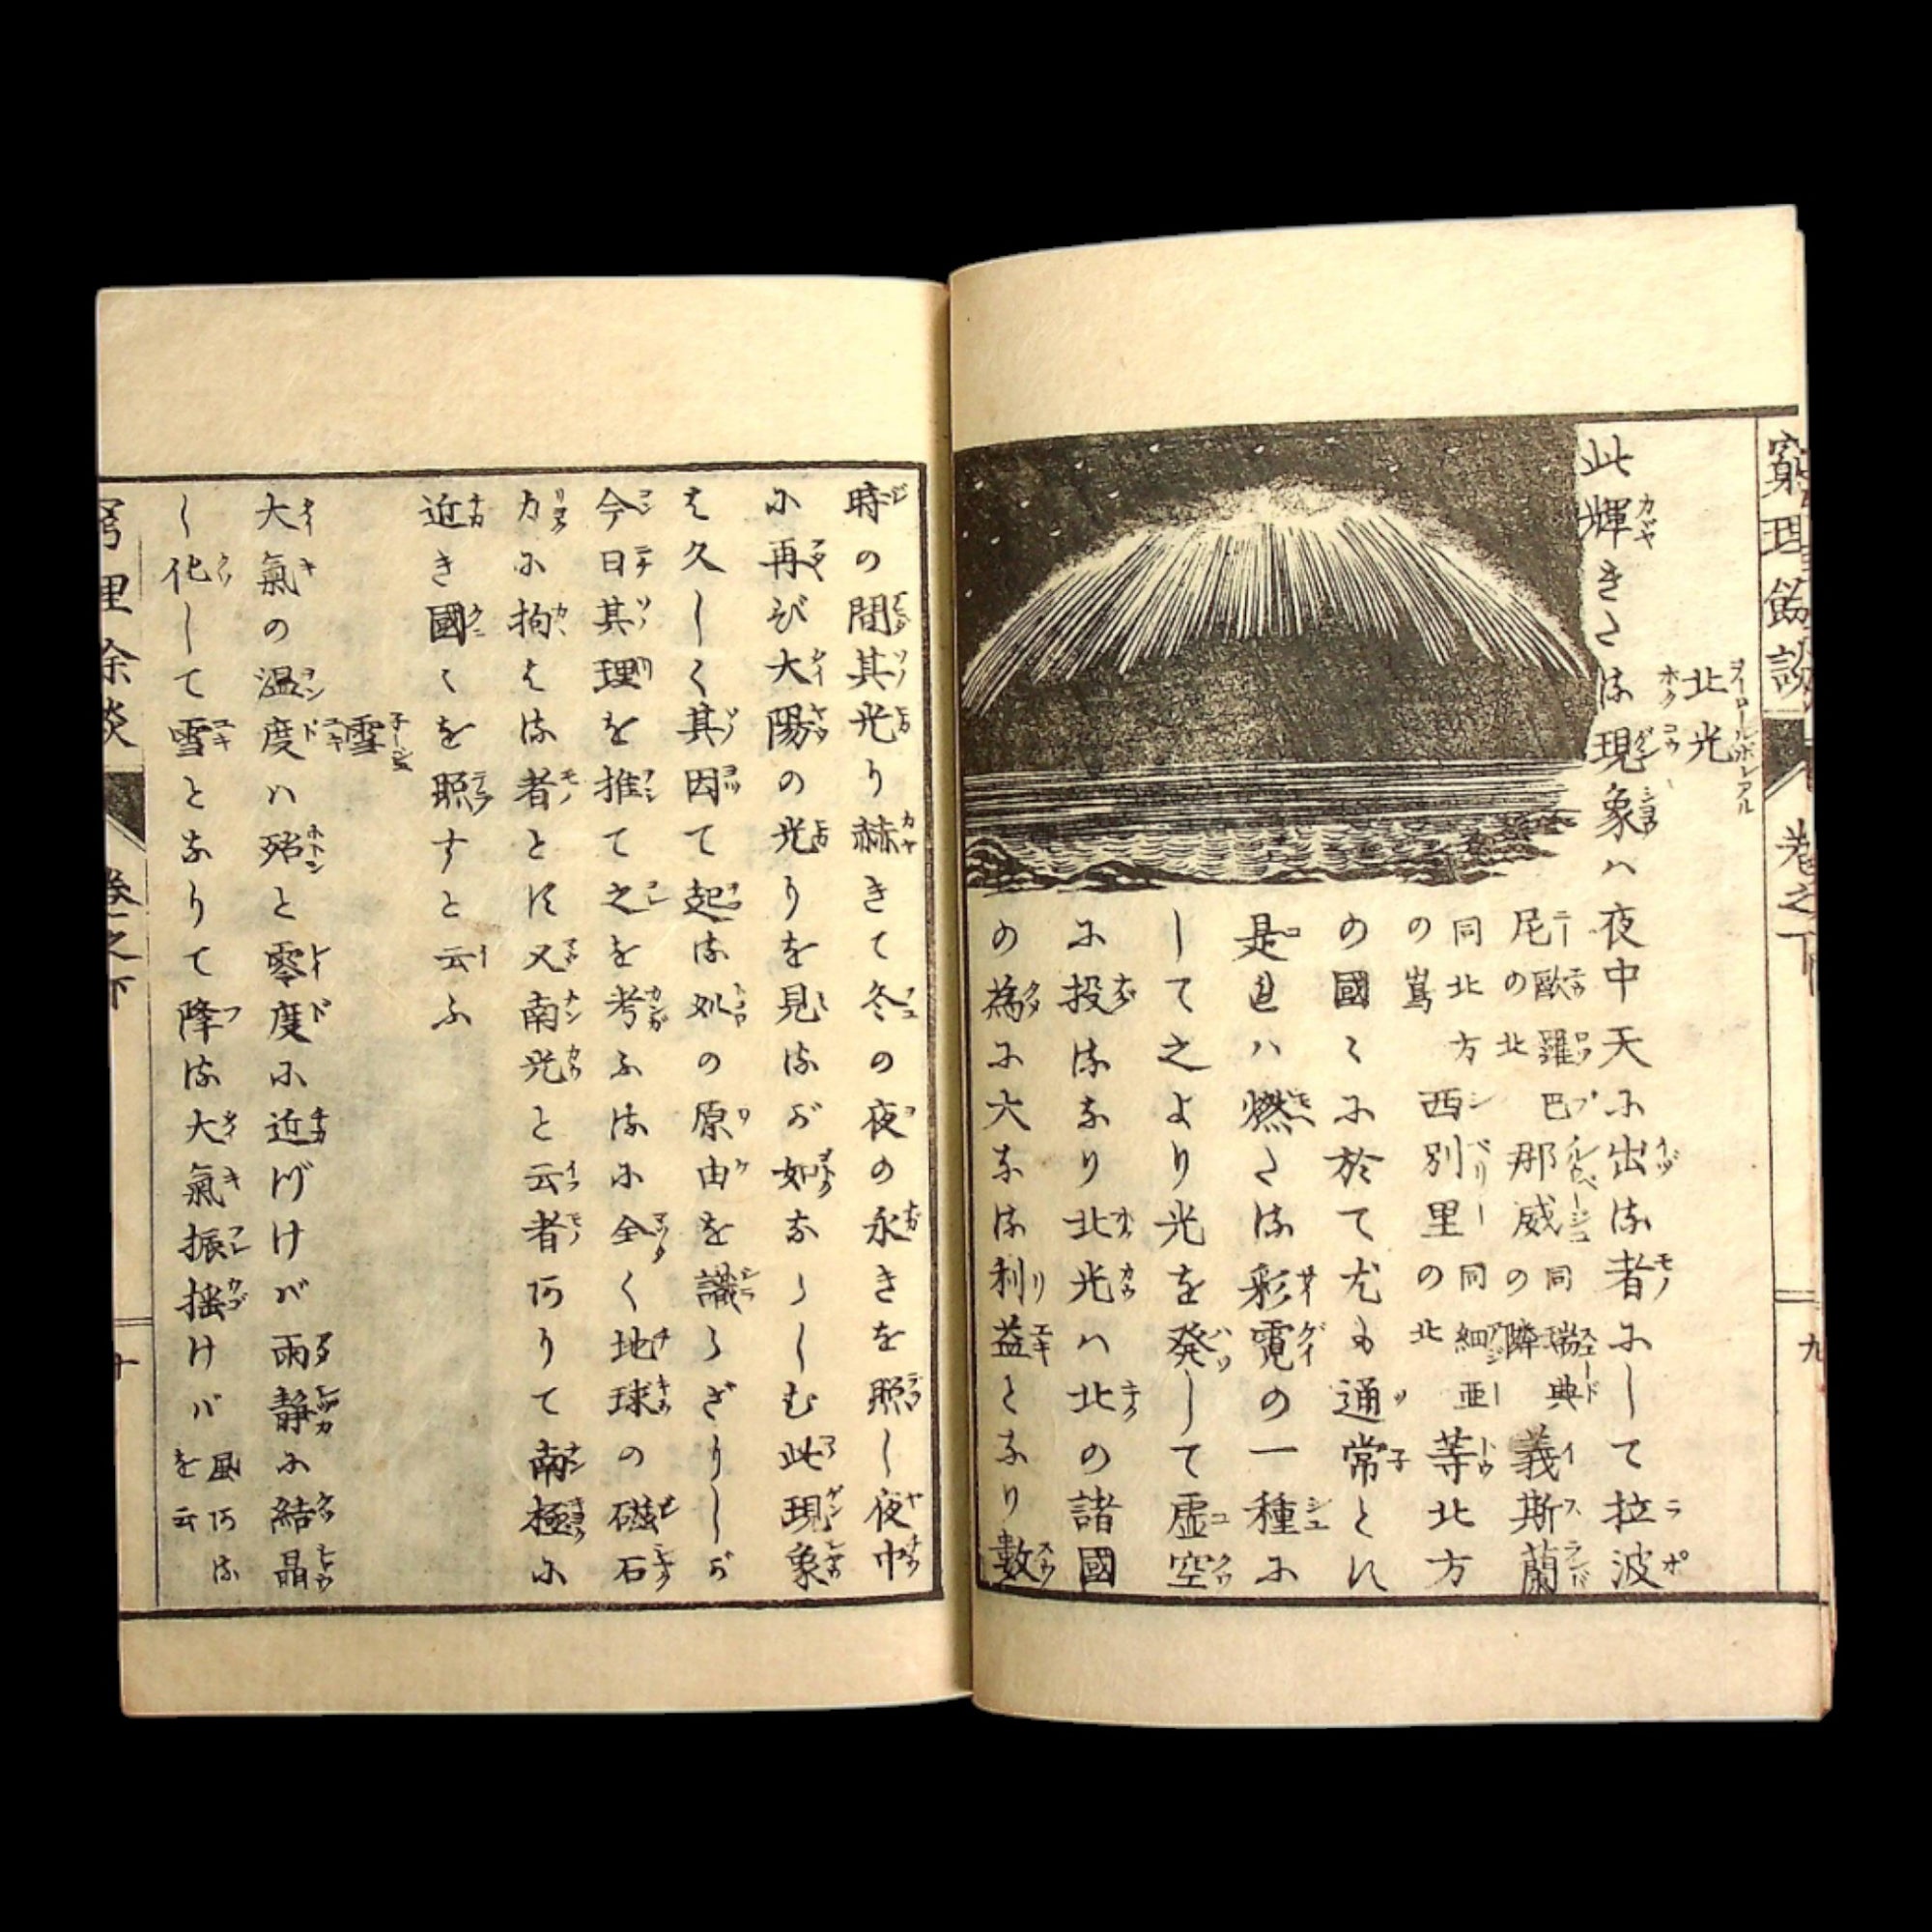 窮理
卷之下
九
北光
ヲーロールボレアル
ホクコウ
此輝きたる現象ハ夜中天に出る者にして拉波
尼歐羅巴の北那威同瑞典の隣義斯蘭
同北方の嶌西別里同細亜の北等北方
の國々に於て尤も通常とす
是れハ燃たる彩霓の一種に
して之より光を発して虚空
に投るなり北光ハ北の諸國
の為に大なる利益となり數
時の間其光り赫きて冬の夜の永きを照し夜中
に再び大陽の光りを見るが如ならしむ此現象
は久しく其因て起る処の原由を識らざりしが
今日其理を推て之を考ふるに全く地球の磁石
力に拘はる者とす又南光と云者阿りて南極に
近き國々を照すと云ふ
雪
子ージュ
ユキ
大氣の温度ハ殆と零度に近けバ雨静に結晶
し化して雪となりて降る大氣振揺けバ風阿るを云
卷之下
十